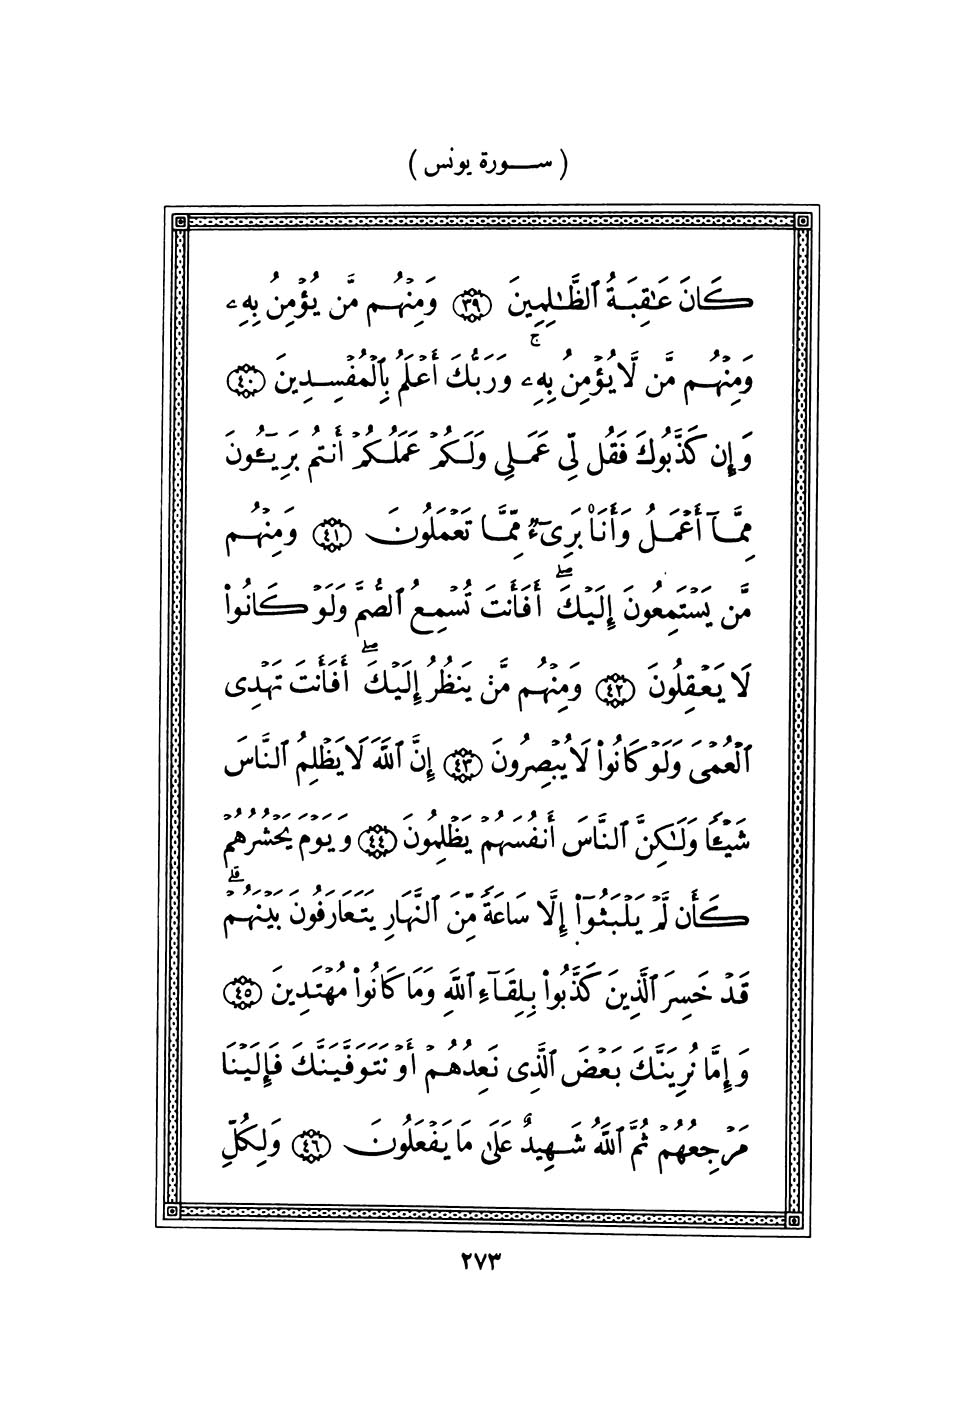 ( سورة يونس )
كَانَ عَٰقِبَةُ ٱلظَّٰلِمِينَ ٣٩ وَمِنْهُم مَّن يُؤْمِنُ بِهِۦ
وَمِنْهُم مَّن لَّا يُؤْمِنُ بِهِۦ ۚ وَرَبُّكَ أَعْلَمُ بِٱلْمُفْسِدِينَ ٤٠
وَإِن كَذَّبُوكَ فَقُل لِّى عَمَلِى وَلَكُمْ عَمَلُكُمْ أَنتُم بَرِيٓـُٔونَ
مِمَّآ أَعْمَلُ وَأَنَا۠ بَرِىٓءٌ مِّمَّا تَعْمَلُونَ ٤١ وَمِنْهُم
مَّن يَسْتَمِعُونَ إِلَيْكَ ۖ أَفَأَنتَ تُسْمِعُ ٱلصُّمَّ وَلَوْ كَانُوا۟
لَا يَعْقِلُونَ ٤٢ وَمِنْهُم مَّن يَنظُرُ إِلَيْكَ ۖ أَفَأَنتَ تَهْدِى
ٱلْعُمْىَ وَلَوْ كَانُوا۟ لَا يُبْصِرُونَ ٤٣ إِنَّ ٱللَّهَ لَا يَظْلِمُ ٱلنَّاسَ
شَيْـًٔا وَلَٰكِنَّ ٱلنَّاسَ أَنفُسَهُمْ يَظْلِمُونَ ٤٤ وَيَوْمَ يَحْشُرُهُمْ
كَأَن لَّمْ يَلْبَثُوٓا۟ إِلَّا سَاعَةً مِّنَ ٱلنَّهَارِ يَتَعَارَفُونَ بَيْنَهُمْ ۗ
قَدْ خَسِرَ ٱلَّذِينَ كَذَّبُوا۟ بِلِقَآءِ ٱللَّهِ وَمَا كَانُوا۟ مُهْتَدِينَ ٤٥
وَإِمَّا نُرِيَنَّكَ بَعْضَ ٱلَّذِى نَعِدُهُمْ أَوْ نَتَوَفَّيَنَّكَ فَإِلَيْنَا
مَرْجِعُهُمْ ثُمَّ ٱللَّهُ شَهِيدٌ عَلَىٰ مَا يَفْعَلُونَ ٤٦ وَلِكُلِّ
٢٧٣